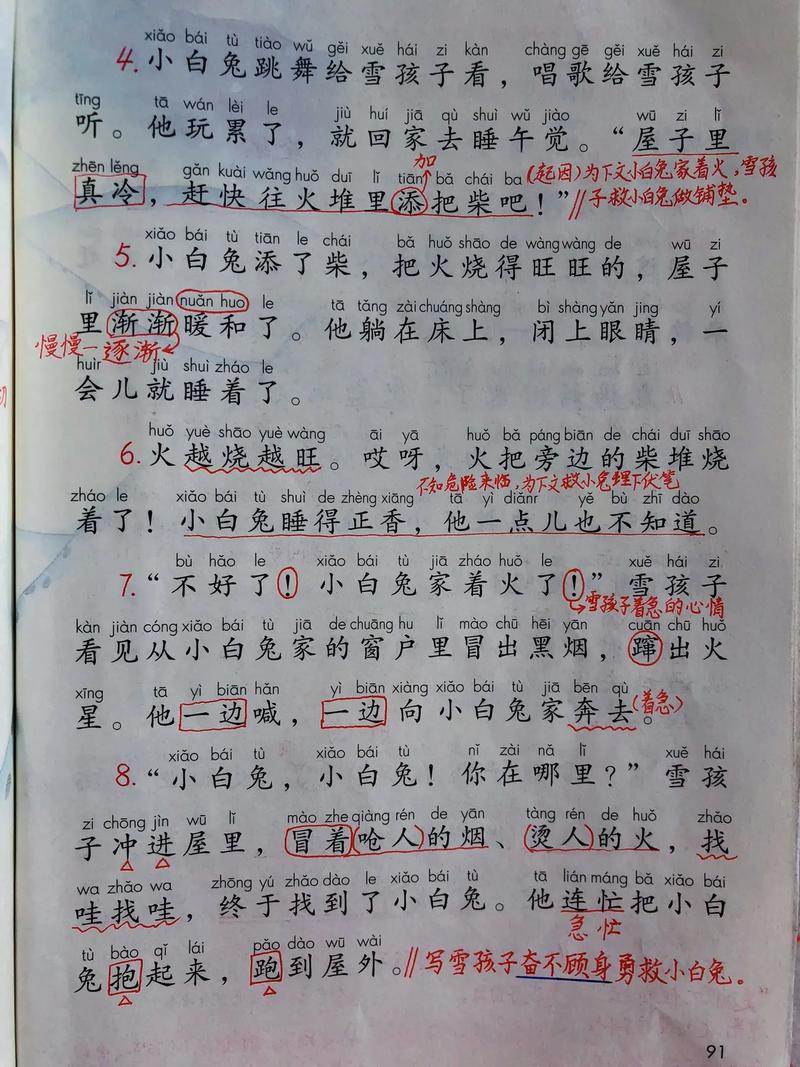 xiǎo bái tù tiào wǔ gěi xuě hái zi kàn chàng gē gěi xuě hái zi
4. 小白兔跳舞给雪孩子看，唱歌给雪孩子
tīng tā wán lèi le jiù huí jiā qù shuì wǔ jiào wū zi lǐ
听。他玩累了，就回家去睡午觉。“屋子里
加
zhēn lěng gǎn kuài wǎng huǒ duī lǐ tiān bǎ chái ba
(起因)为下文小白兔家着火，雪孩
真冷，赶快往火堆里添把柴吧！”
//子救小白兔做铺垫。
xiǎo bái tù tiān le chái bǎ huǒ shāo de wàng wàng de wū zi
5. 小白兔添了柴，把火烧得旺旺的，屋子
lǐ jiàn jiàn nuǎn huo le tā tǎng zài chuáng shàng bì shàng yǎn jing yí
里渐渐暖和了。他躺在床上，闭上眼睛，一
慢慢—逐渐
huìr jiù shuì zháo le
会儿就睡着了。
huǒ yuè shāo yuè wàng āi yā huǒ bǎ páng biān de chái duī shāo
6. 火越烧越旺。哎呀，火把旁边的柴堆烧
不知危险来临，为下文救小兔埋下伏笔
zháo le xiǎo bái tù shuì de zhèng xiāng tā yì diǎnr yě bù zhī dào
着了！小白兔睡得正香，他一点儿也不知道。
bù hǎo le xiǎo bái tù jiā zháo huǒ le xuě hái zi
7. “不好了！小白兔家着火了！”雪孩子
雪孩子着急的心情
kàn jiàn cóng xiǎo bái tù jiā de chuāng hu lǐ mào chū hēi yān cuān chū huǒ
看见从小白兔家的窗户里冒出黑烟，蹿出火
xīng tā yì biān hǎn yì biān xiàng xiǎo bái tù jiā bēn qù
星。他一边喊，一边向小白兔家奔去。(着急)
xiǎo bái tù xiǎo bái tù nǐ zài nǎ lǐ xuě hái
8. “小白兔，小白兔！你在哪里？”雪孩
zi chōng jìn wū lǐ mào zhe qiàng rén de yān tàng rén de huǒ zhǎo
子冲进屋里，冒着呛人的烟、烫人的火，找
wa zhǎo wa zhōng yú zhǎo dào le xiǎo bái tù tā lián máng bǎ xiǎo bái
哇找哇，终于找到了小白兔。他连忙把小白
急忙
tù bào qǐ lái pǎo dào wū wài
兔抱起来，跑到屋外。//写雪孩子奋不顾身勇救小白兔。
91